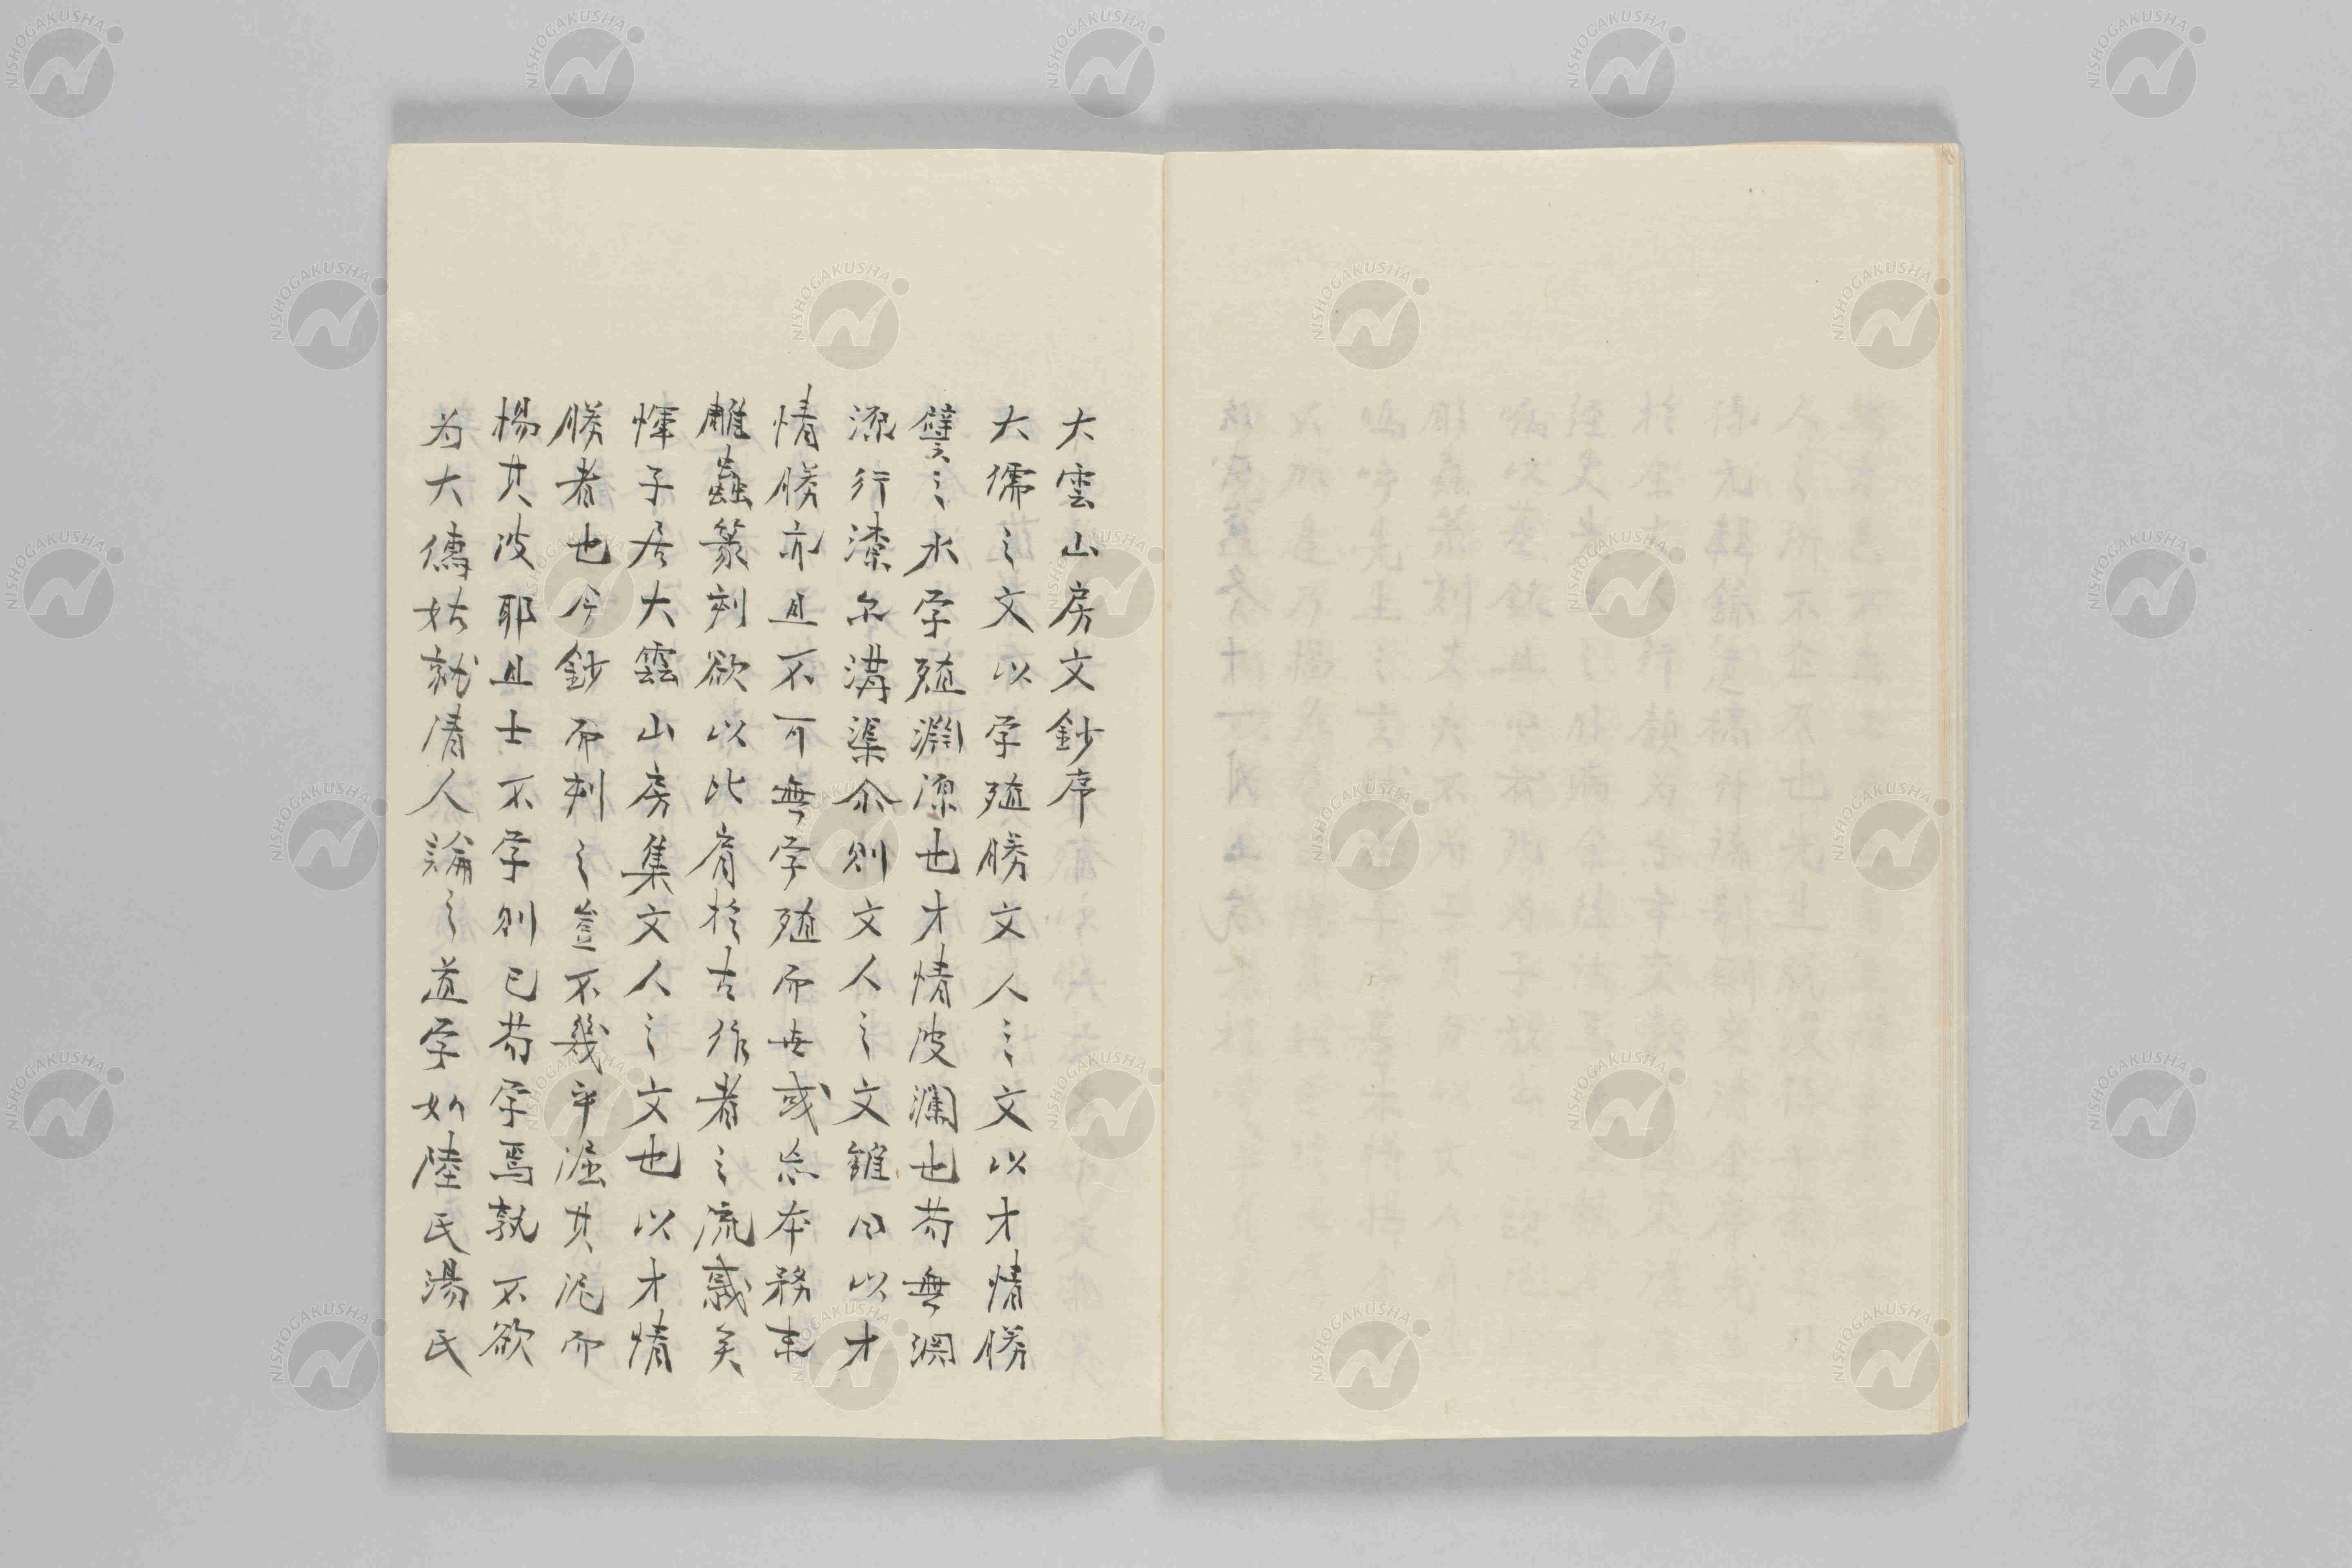 大雲山房文鈔序
大儒之文以学殖勝文人之文以才情勝
譬之水学殖淵源也才情波瀾也苟無淵
源行潦尓溝渠尓則文人之文雖曰以才
情勝亦且不可無学殖而世或忘本務末
雕蟲篆刻欲以比肩於古作者之流惑矣
惲子居大雲山房集文人之文也以才情
勝者也今鈔而刻之豈不幾乎淈其泥而
揚其波耶且士不学則已苟学焉孰不欲
為大儒姑就清人論之道学如陸氏湯氏
NISHOGAKUSHA